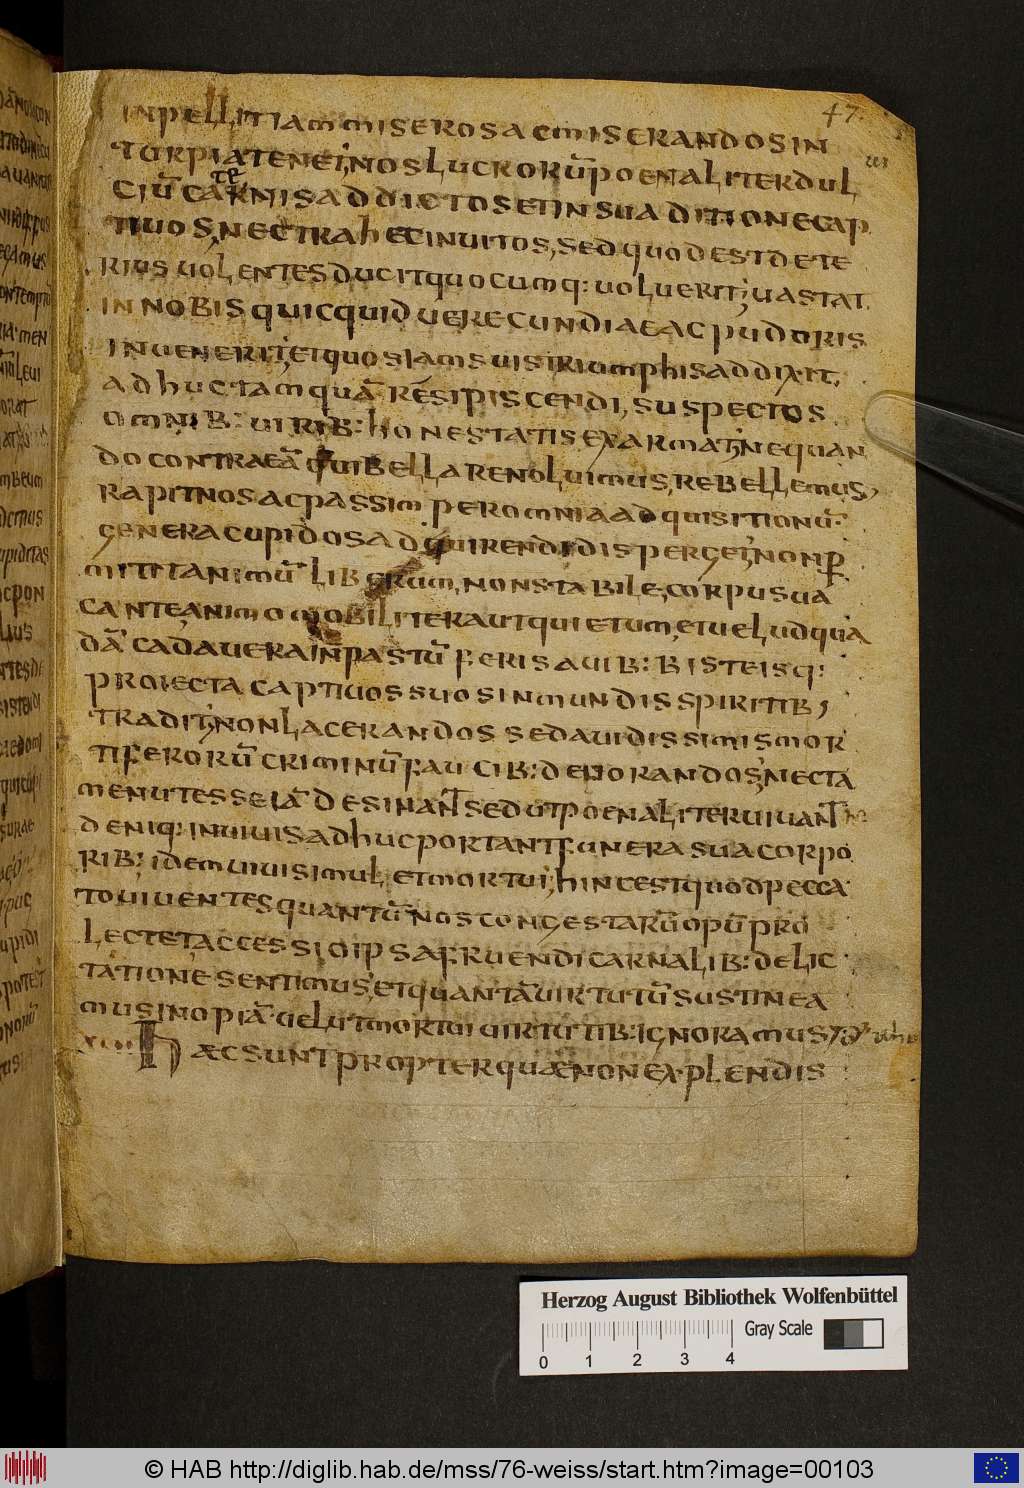 47
INPELLIT IAM MISEROS AC MISERANDOS IN
TURPIA TENET; NOS LUCRORŪ POENALITER DUL
CIŪ CARNIS ADDICTOS ET IN SUA DITIONE CAP
TIUOS, NEC TRAHET INUITOS, SED QUOD EST DETE
RIUS UOLENTES DUCIT QUOCUMQ: UOLUERIT; UASTAT
IN NOBIS QUICQUID UERECUNDIAE AC PUDORIS
INUENERIT; ET QUOS IAM SUIS TRIUMPHIS ADDIXIT,
ADHUC TAMQUĀ RESIPISCENDI, SUSPECTOS
OMNIB: UIRIB: HONESTATIS EXARMAT; NE QUAN
DO CONTRA EĀ QUI BELLARE NOLUIMUS, REBELLEMUS,
RAPIT NOS AC PASSIM PER OMNIA ADQUISITIONŪ
GENERA CUPIDOS ADQUIRENDI DISPERGET; NON P
MITTIT ANIMŪ LIBERUM, NON STABILE, CORPUS UA
CANTE ANIMO MOBILITER AUT QUIETUM, ET UELUD QUA
DĀ CADAUERA IN PASTŪ FERIS AUIB: BISTEISQ:
PROIECTA CAPTIUOS SUOS INMUNDIS SPIRITIB;
TRADIT; NON LACERANDOS SED AUIDISSIMIS MOR
TIFERORŪ CRIMINŪ FAUCIB: DEUORANDOS; NEC TA
MEN UT ESSE IĀ DESINANT SED UT POENALITER UIUANT
DENIQ: IN UIUIS ADHUC PORTANT FUNERA SUA CORPO
RIB: IDEM UIUI SIMUL, ET MORTUI; HINC EST QUOD PECCA
TO UIUENTES QUANTŪ NOS CONGESTARŪ OPŪ PRO
LECTET ACCESSIO IPSA FRUENDI CARNALIB: DELIC
TATIONE SENTIMUS, ET QUANTĀ UIRTUTŪ SUSTINEA
MUS INOPIĀ UELUT MORTUI UIRTUTIB: IGNORAMUS,
HAEC SUNT PROPTER QUAE NON EXPLENDIS
Herzog August Bibliothek Wolfenbüttel
Gray Scale
0 1 2 3 4
© HAB http://diglib.hab.de/mss/76-weiss/start.htm?image=00103